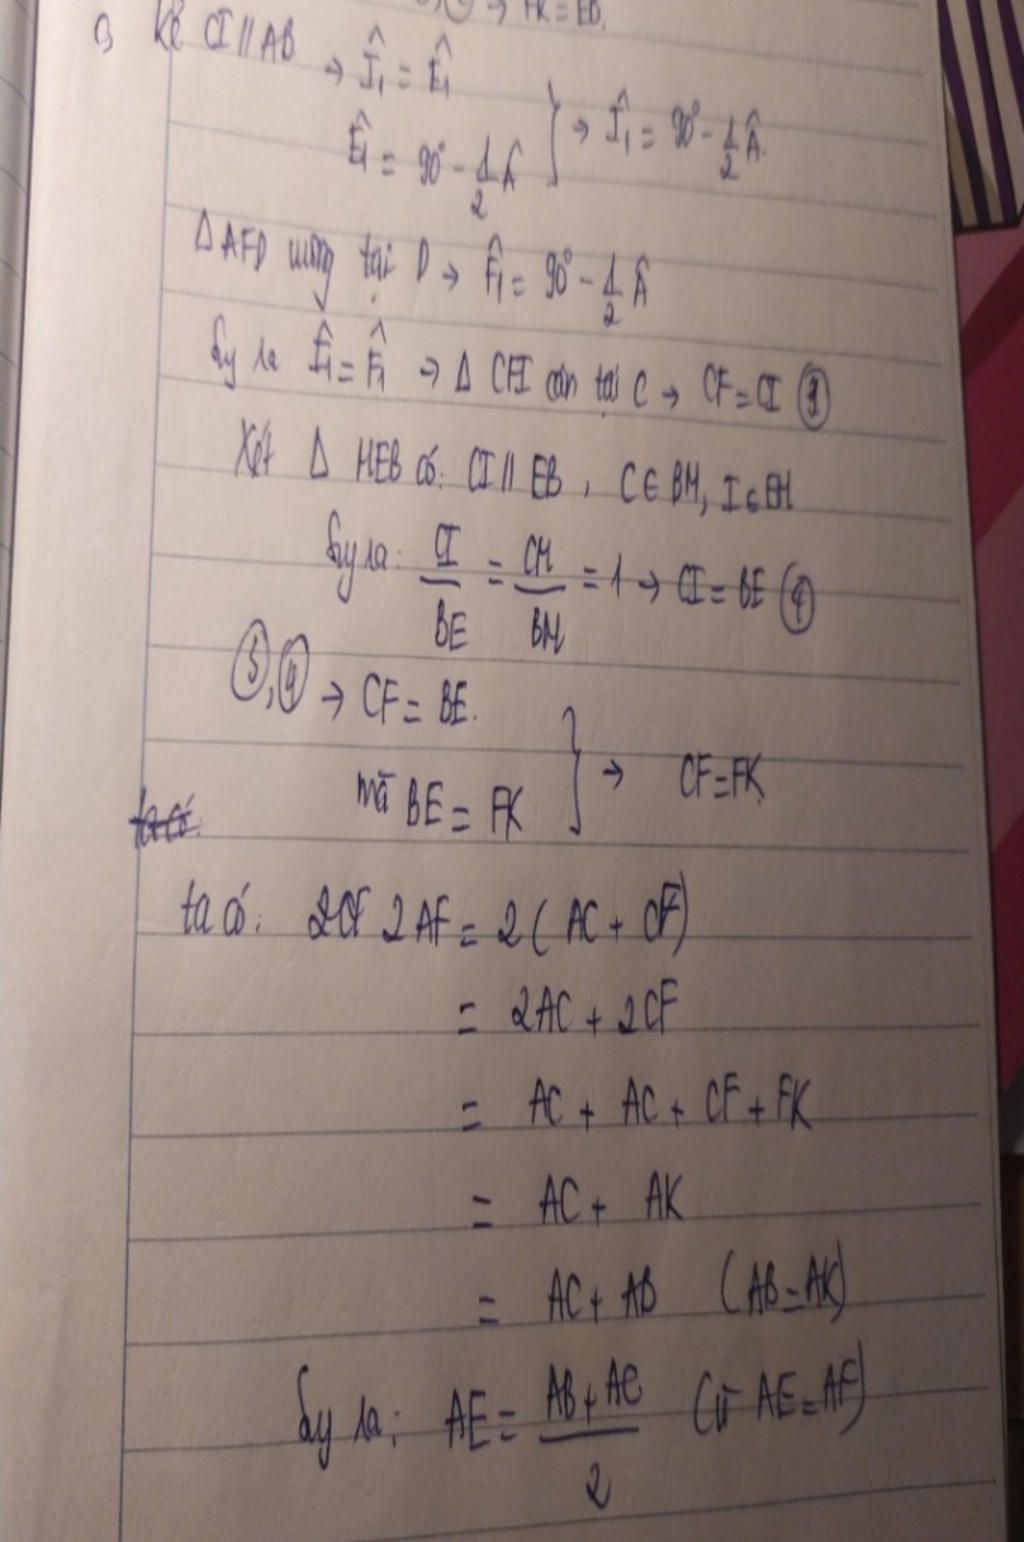 → FK = EB.
c) Kẻ CI // AB → Î₁ = Ê₁
Ê₁ = 90° - 1/2 Â } → Î₁ = 90° - 1/2 Â.
Δ AFD vuông tại D → F̂₁ = 90° - 1/2 Â
Suy ra Î₁ = F̂₁ → Δ CFI cân tại C → CF = CI (3)
Xét Δ MEB có: CI // EB, C ∈ BM, I ∈ EM
Suy ra: CI/BE = CM/BM = 1 → CI = BE (4)
(3), (4) → CF = BE.
mà BE = FK } → CF = FK
ta có:
ta có: 2CF 2AF = 2(AC + CF)
= 2AC + 2CF
= AC + AC + CF + FK
= AC + AK
= AC + AB (AB = AK)
Suy ra: AE = (AB + AC)/2 (vì AE = AF)